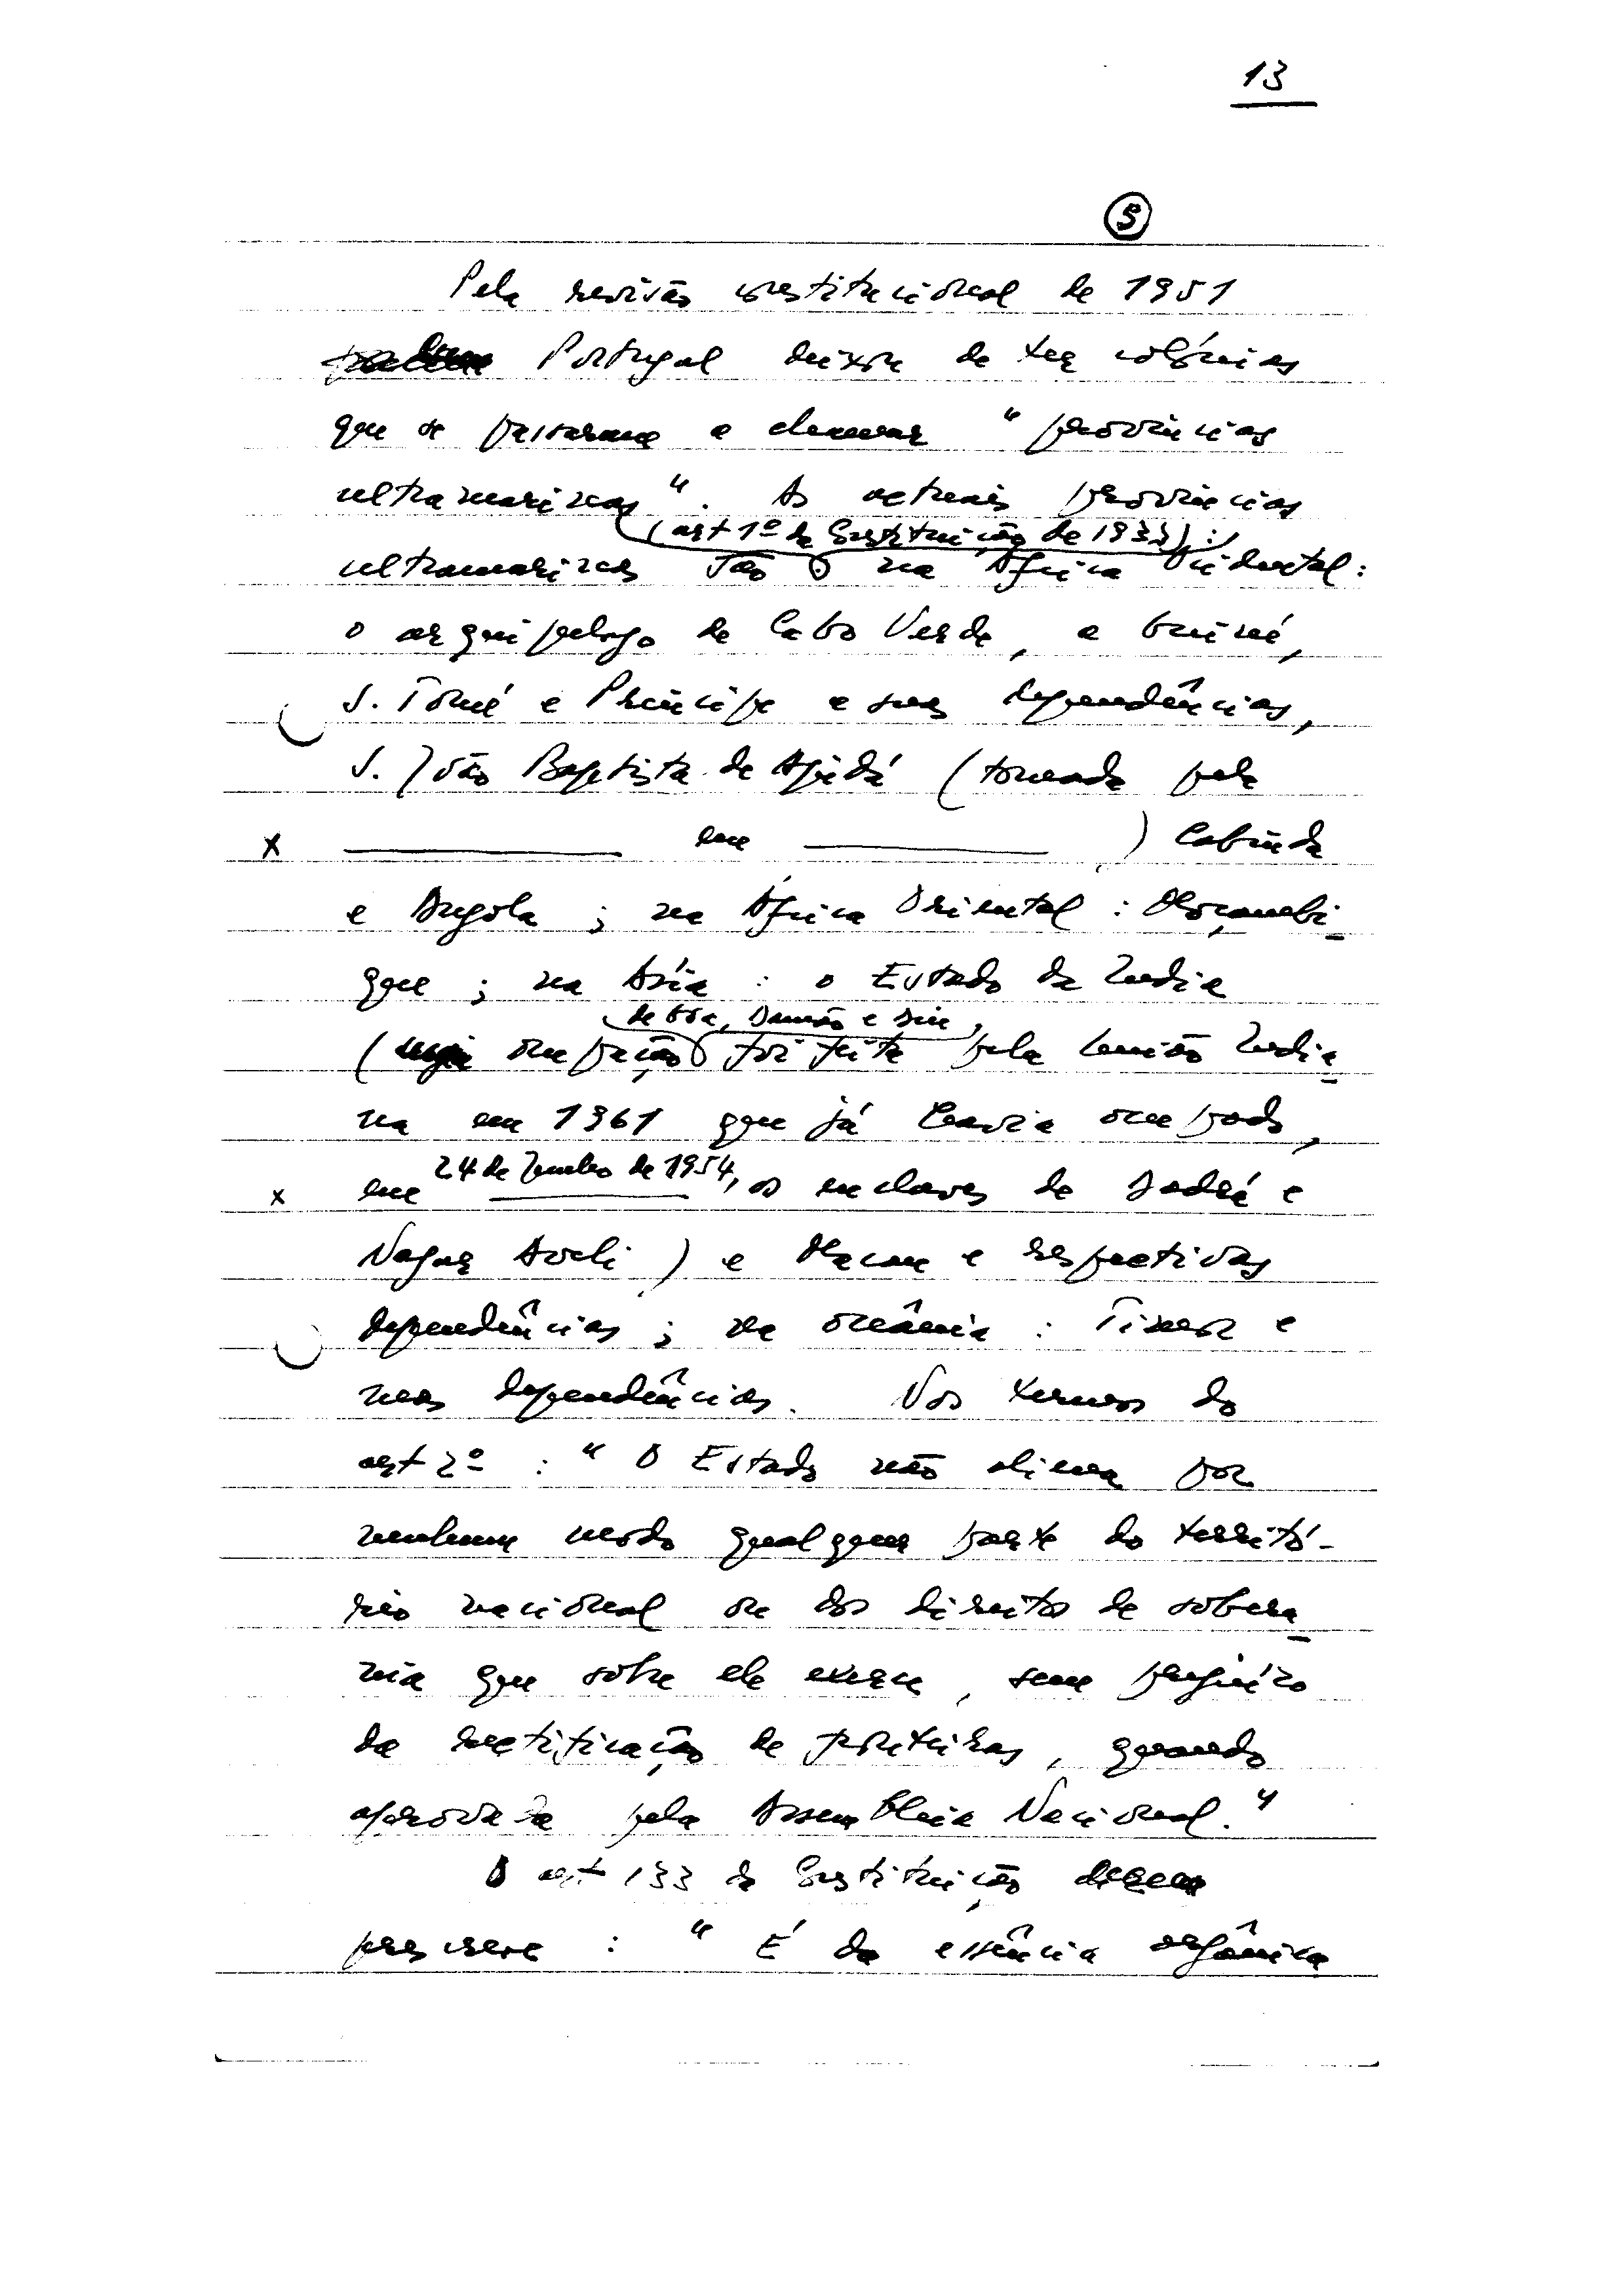 13
5
Pela revisão constitucional de 1951
Portugal deixou de ter colónias
que se passaram a chamar "províncias
ultramarinas". As actuais províncias
(art 1º da Constituição de 1933):
ultramarinas são na África Ocidental:
o arquipelago de Cabo Verde, a Guiné,
S. Tomé e Príncipe e suas dependências,
S. João Baptista de Ajudá (tomada pela
x ________ em ________ ) Cabinda
e Angola ; na África Oriental : Moçambi-
que ; na Ásia : o Estado da India
de Goa, Damão e Diu,
(cuja ocupação foi feita pela União India-
na em 1961 que já havia ocupado,
24 de Junho de 1954,
x em ________ os enclaves de Dadrá e
Nagar Aveli ) e Macau e respectivas
dependências ; na oceânia : Timor e
suas dependências. Nos termos do
art 2º : " O Estado não aliena por
nenhum modo qualquer parte do territó-
rio nacional ou dos direitos de sobera-
nia que sobre ele exerce, sem prejuízo
da rectificação de fronteiras, quando
aprovada pela Assembleia Nacional."
O art 133 da Constituição
prescreve : " É da essência orgânica